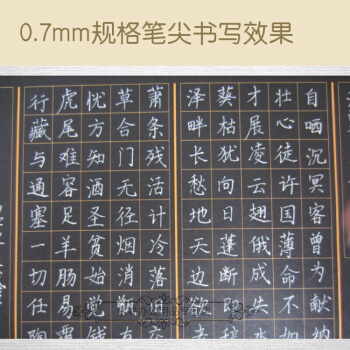 0.7mm规格笔尖书写效果
自哂沉冥客曾为献纳
壮心徒许国薄命不如
才展凌云翅俄成失水
葵枯犹向日蓬断辞
泽畔长愁地天边欲
萧条残活计冷落旧
草合门无径烟消甑有
忧方知酒圣贫始觉钱
虎尾难容足羊肠易覆
行藏与通塞一切任陶